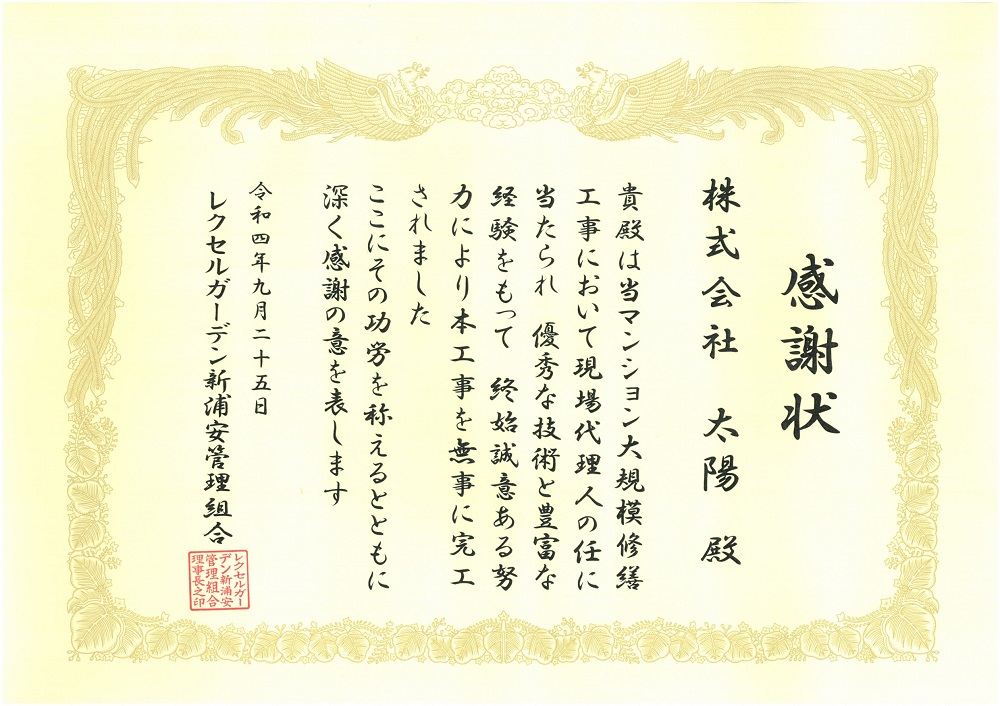 感謝状
株式会社 太陽 殿
貴殿は当マンション大規模修繕
工事において現場代理人の任に
当たられ 優秀な技術と豊富な
経験をもって 終始誠意ある努
力により本工事を無事に完工
されました
ここにその功労を称えるとともに
深く感謝の意を表します
令和四年九月二十五日
レクセルガーデン新浦安管理組合
レクセルガー
デン新浦安
管理組合
理事長之印